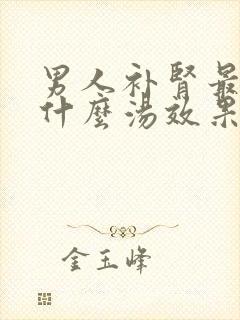 男人补腎最
什麼湯效果
金玉峰